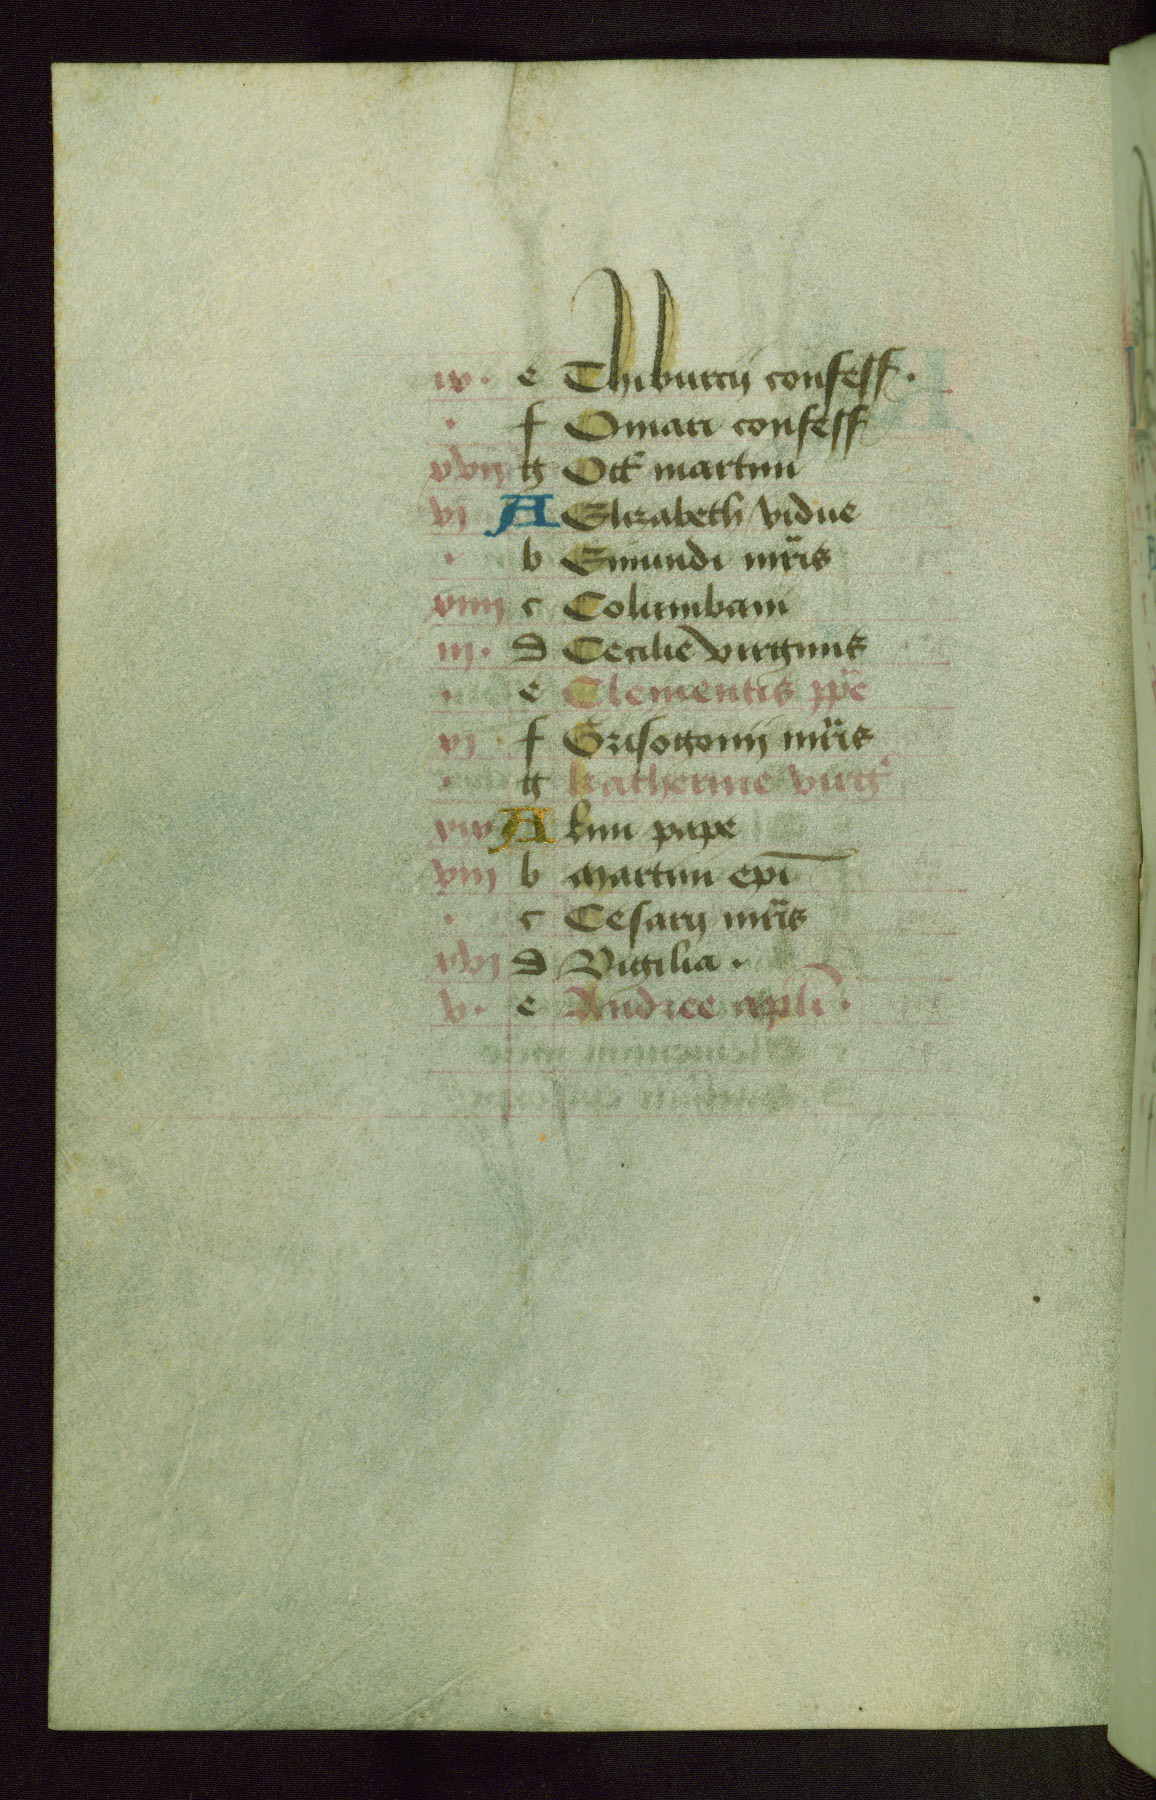 iv · e Thiburcii confess ·
· f Omari confess
xvii g Oct martini
vi A Elizabeth vidue
· b Emundi mris
xiiii c Columbani
iii · d Cecilie virginis
· e Clementis ppe
xi · f Grisogonii mris
· g katherine virg
xix A Lini pape
viii b Martini epi
· c Cesarii mris
xvi d Vigilia ·
v · e Andree apli ·